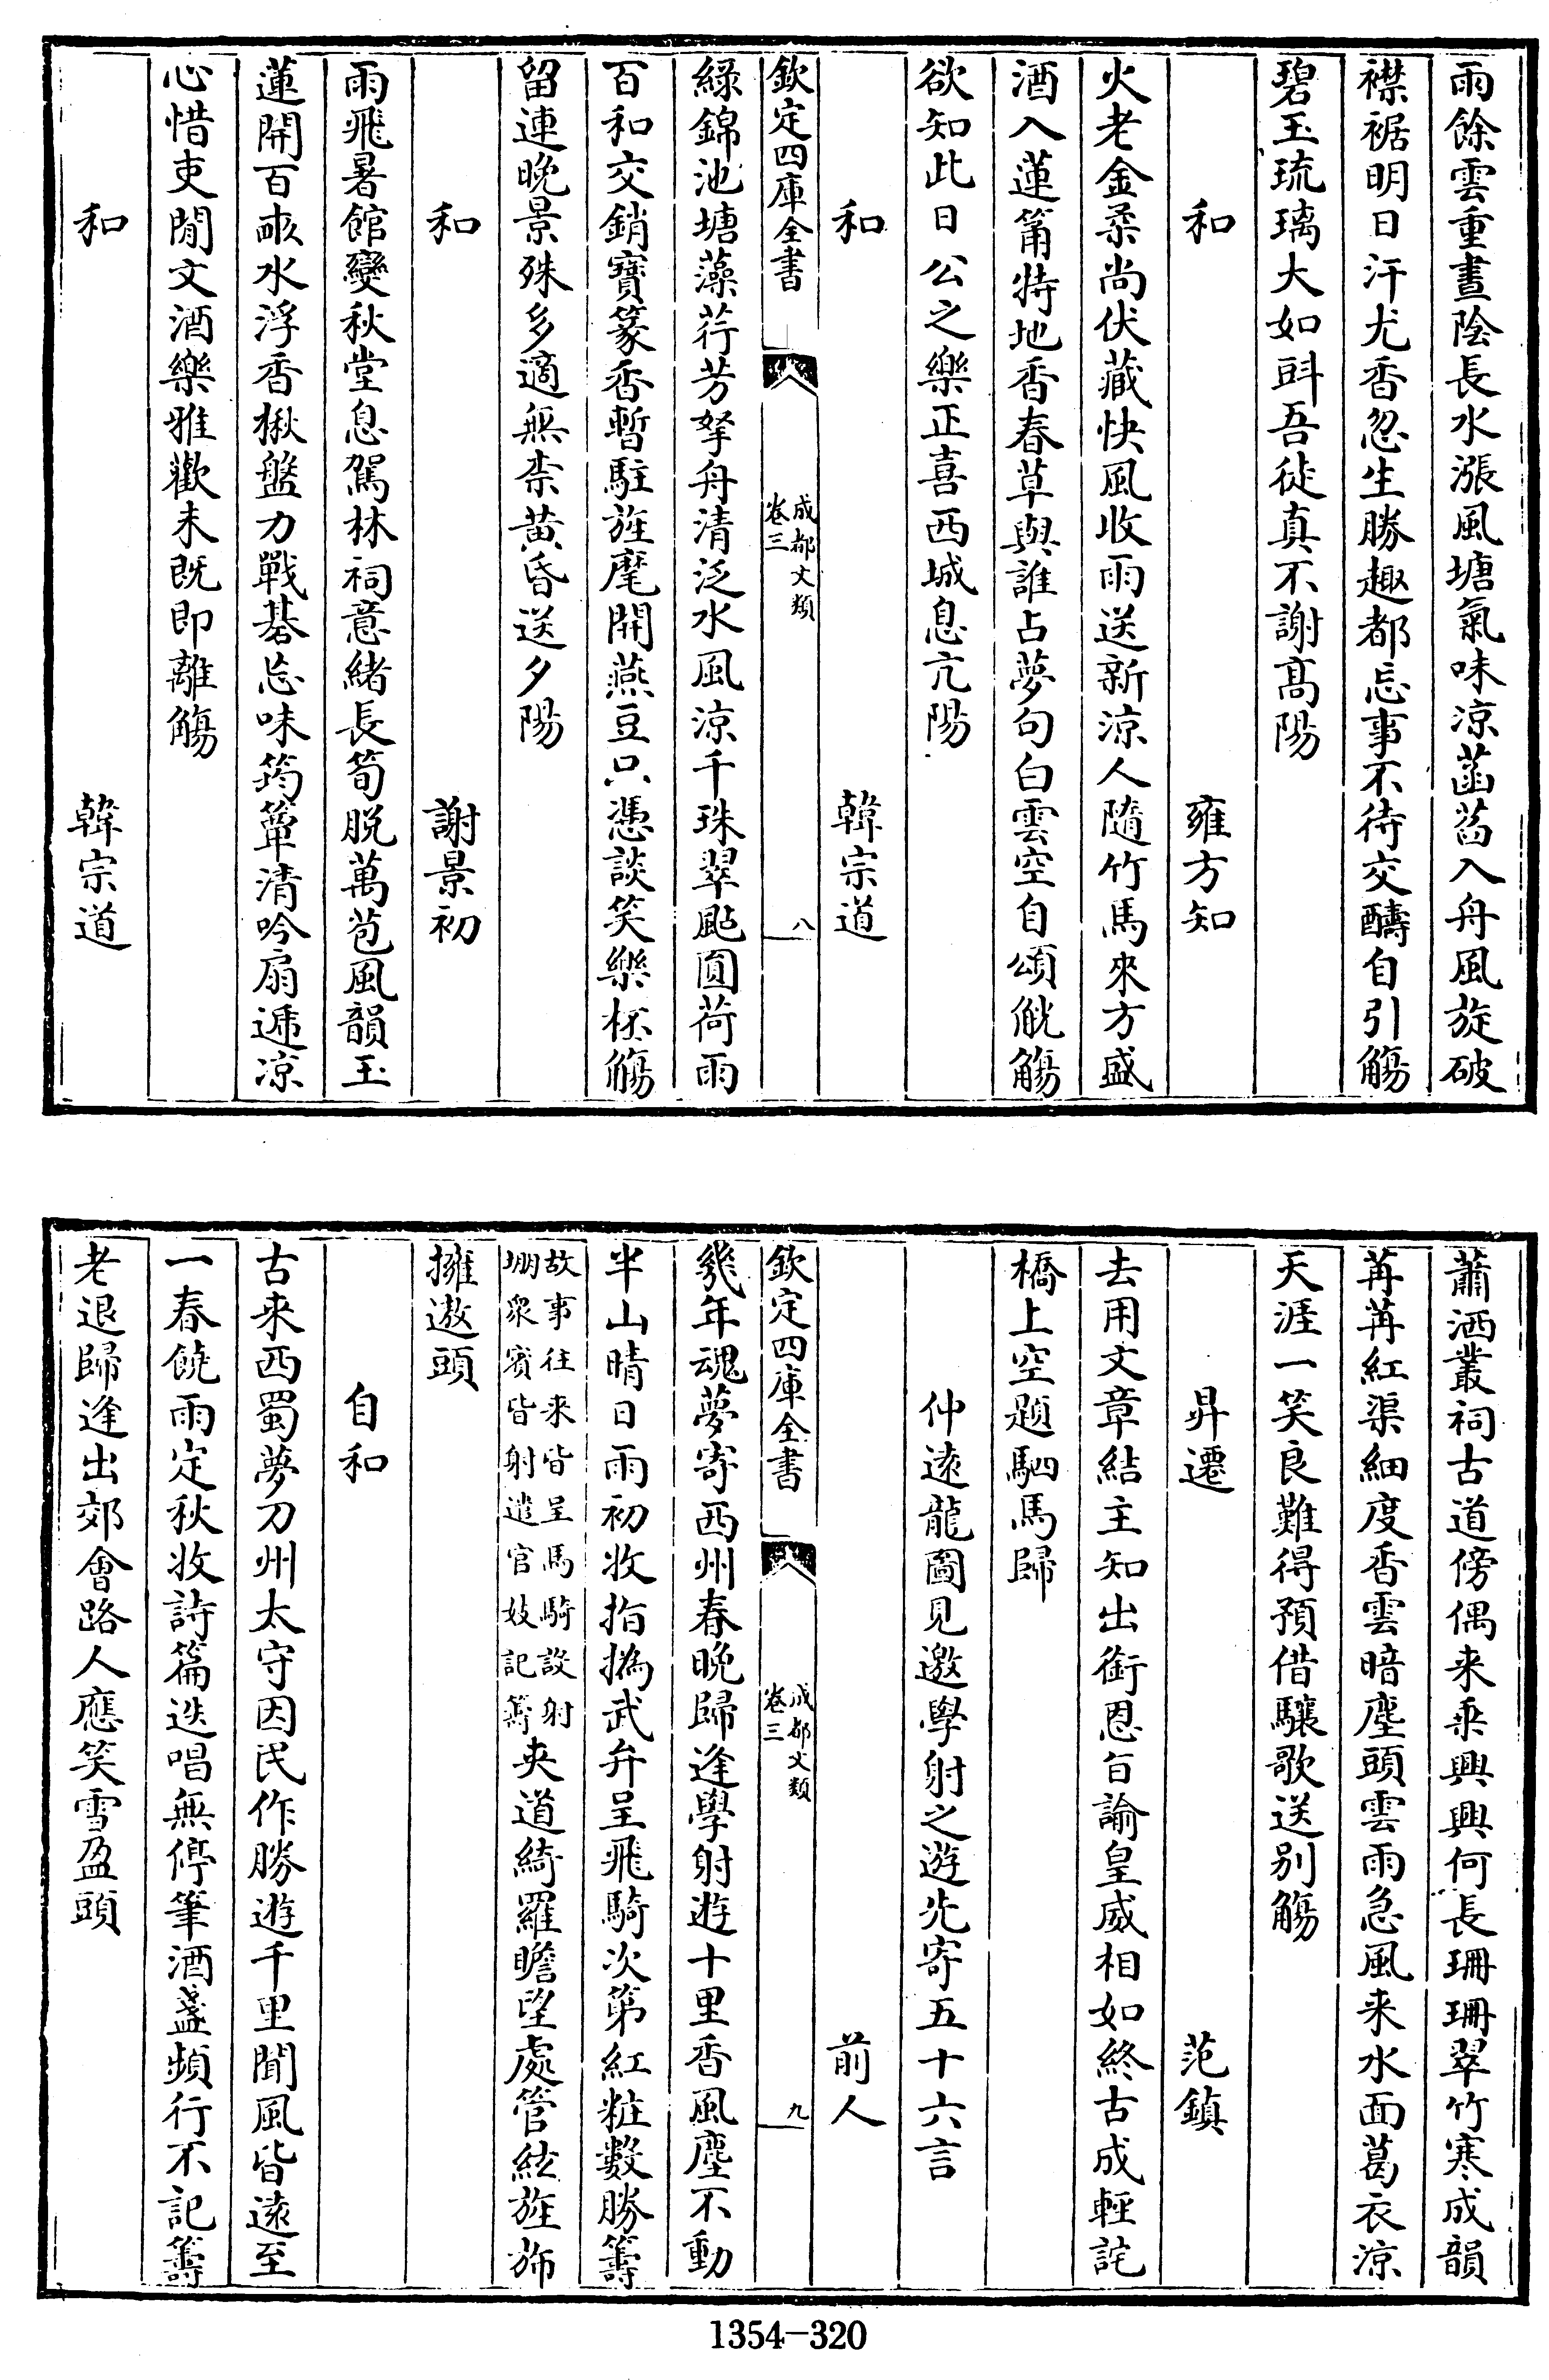 雨餘雲重晝陰長水漲風塘氣味凉菡萏入舟風旋破
襟裾明日汗尤香忽生勝趣都忘事不待交醻自引觴
碧玉琉璃大如㪷吾徒真不謝髙陽
和 雍方知
火老金柔尚伏藏快風收雨送新凉人隨竹馬來方盛
酒入蓮筩特地香春草與誰占夢句白雲空自頌觥觴
欲知此日公之樂正喜西城息亢陽
和 韓宗道
欽定四庫全書
成都文類
卷三
八
綠錦池塘藻荇芳拏舟清泛水風凉千珠翠颭圓荷雨
百和交銷寳篆香暫駐旌麾開燕豆只憑談笑樂杯觴
留連晚景殊多適無柰黄昏送夕陽
和 謝景初
雨飛暑館變秋堂息駕林祠意緒長筍脱萬苞風韻玉
蓮開百畝水浮香楸盤力戰棊忘味筠簟清吟扇遞凉
心惜吏閒文酒樂雅歡未既即離觴
和 韓宗道
蕭洒叢祠古道傍偶来乘興興何長珊珊翠竹寒成韻
苒苒紅渠細度香雲暗塵頭雲雨急風来水面葛衣凉
天涯一笑良難得預借驪歌送别觴
昇遷 范鎮
去用文章結主知出銜恩㫖諭皇威相如終古成輕詫
橋上空題駟馬歸
仲逺龍圖見邀學射之遊先寄五十六言
前人
欽定四庫全書
成都文類
卷三
九
幾年魂夢寄西州春晚歸逢學射遊十里香風塵不動
半山晴日雨初收指撝武弁呈飛騎次第紅粧數勝籌
故事往来皆呈馬騎設射
堋衆賓皆射遣官妓記籌
夹道綺羅瞻望處管絃旌斾
擁遨頭
自和
古来西蜀夢刀州太守因民作勝遊千里聞風皆逺至
一春饒雨定秋收詩篇迭唱無停筆酒盞頻行不記籌
老退歸逢出郊會路人應笑雪盈頭
1354-320